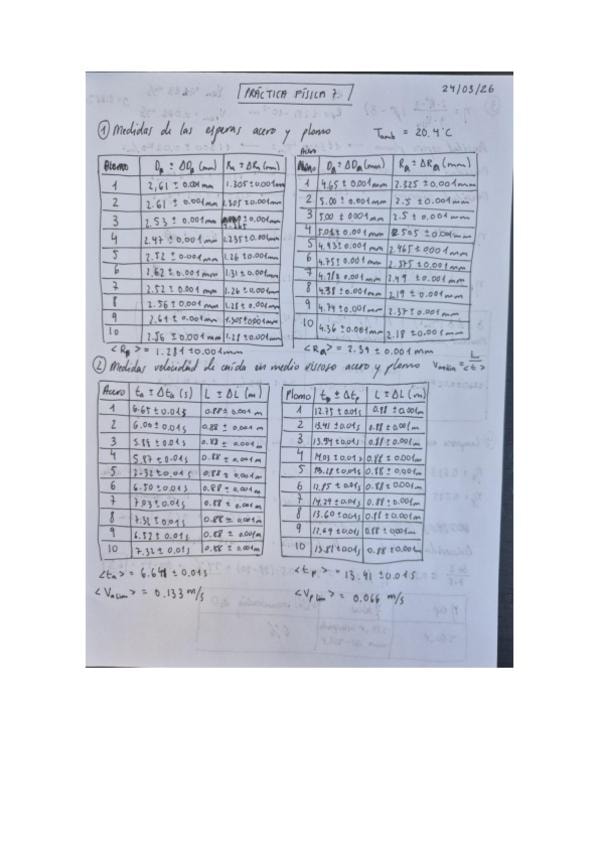 PRÁCTICA FÍSICA 7
24/03/26
① Medidas de las esperas acero y plomo
Tamb = 20.4°C
Plomo | Dp ± ΔDp (mm) | Rp ± ΔRp (mm)
1 | 2,61 ± 0.001 mm | 1.305 ± 0.001 mm
2 | 2.61 ± 0.001 mm | 1.305 ± 0.001 mm
3 | 2.53 ± 0.001 mm | ± 0.001 mm
4 | 2.47 ± 0.001 mm | 1.235 ± 0.001 mm
5 | 2.52 ± 0.001 mm | 1.26 ± 0.001 mm
6 | 2.62 ± 0.001 mm | 1.31 ± 0.001 mm
7 | 2.52 ± 0.001 mm | 1.26 ± 0.001 mm
8 | 2.56 ± 0.001 mm | 1.28 ± 0.001 mm
9 | 2.61 ± 0.001 mm | 1.305 ± 0.001 mm
10 | 2.56 ± 0.001 mm | 1.28 ± 0.001 mm
<Rp> = 1.281 ± 0.001 mm
Acero | Da ± ΔDa (mm) | Ra ± ΔRa (mm)
1 | 4.65 ± 0.001 mm | 2.325 ± 0.001 mm
2 | 5.00 ± 0.001 mm | 2.5 ± 0.001 mm
3 | 5.00 ± 0.001 mm | 2.5 ± 0.001 mm
4 | 5.01 ± 0.001 mm | 2.505 ± 0.001 mm
5 | 4.93 ± 0.001 mm | 2.465 ± 0.001 mm
6 | 4.75 ± 0.001 mm | 2.375 ± 0.001 mm
7 | 4.78 ± 0.001 mm | 2.49 ± 0.001 mm
8 | 4.38 ± 0.001 mm | 2.19 ± 0.001 mm
9 | 4.74 ± 0.001 mm | 2.37 ± 0.001 mm
10 | 4.36 ± 0.001 mm | 2.18 ± 0.001 mm
<Ra> = 2.39 ± 0.001 mm
② Medidas velocidad de caída en medio viscoso acero y plomo
= L / <t>
Acero | ta ± Δta (s) | L ± ΔL (m)
1 | 6.65 ± 0.01 s | 0.88 ± 0.001 m
2 | 6.00 ± 0.01 s | 0.88 ± 0.001 m
3 | 5.84 ± 0.01 s | 0.88 ± 0.001 m
4 | 5.87 ± 0.01 s | 0.88 ± 0.001 m
5 | 7.32 ± 0.01 s | 0.88 ± 0.001 m
6 | 6.50 ± 0.01 s | 0.88 ± 0.001 m
7 | 7.03 ± 0.01 s | 0.88 ± 0.001 m
8 | 7.31 ± 0.01 s | 0.88 ± 0.001 m
9 | 6.52 ± 0.01 s | 0.88 ± 0.001 m
10 | 7.32 ± 0.01 s | 0.88 ± 0.001 m
<ta> = 6.648 ± 0.01 s
<Va lim> = 0.133 m/s
Plomo | tp ± Δtp | L ± ΔL (m)
1 | 12.75 ± 0.01 s | 0.88 ± 0.001 m
2 | 13.41 ± 0.01 s | 0.88 ± 0.001 m
3 | 13.54 ± 0.01 s | 0.88 ± 0.001 m
4 | 14.03 ± 0.01 s | 0.88 ± 0.001 m
5 | 13.18 ± 0.01 s | 0.88 ± 0.001 m
6 | 12.85 ± 0.01 s | 0.88 ± 0.001 m
7 | 14.29 ± 0.01 s | 0.88 ± 0.001 m
8 | 13.60 ± 0.01 s | 0.88 ± 0.001 m
9 | 12.69 ± 0.01 s | 0.88 ± 0.001 m
10 | 13.81 ± 0.01 s | 0.88 ± 0.001 m
<tp> = 13.41 ± 0.01 s
<Vp lim> = 0.066 m/s